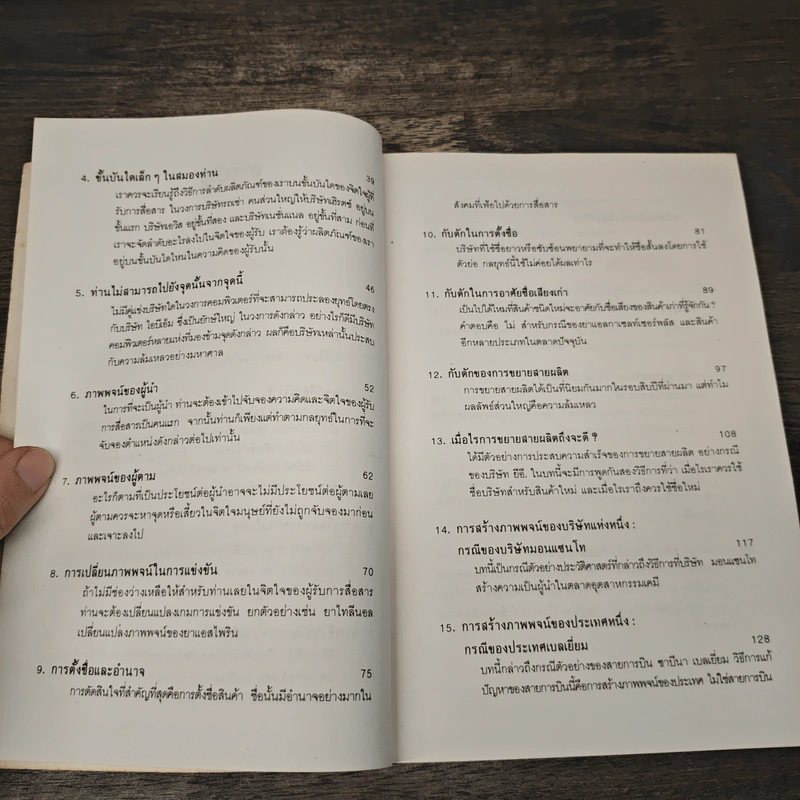 4. ขั้นบันไดเล็ก ๆ ในสมองท่าน 39
เราควรจะเรียนรู้ถึงวิธีการลำดับผลิตภัณฑ์ของเราบนขั้นบันไดของจิตใจผู้ที่
รับการสื่อสาร ในวงการบริษัทรถเช่า คนส่วนใหญ่ให้บริษัทเฮิรตซ์ อยู่บน
ขั้นแรก บริษัทเอวิส อยู่ขั้นที่สอง และบริษัทเนชั่นแนล อยู่ขั้นที่สาม ก่อนที่
เราจะจัดลำดับอะไรลงไปในจิตใจของผู้รับ เราต้องรู้ว่าผลิตภัณฑ์ของเรา
อยู่บนขั้นบันไดไหนในความคิดของผู้รับนั้น
5. ท่านไม่สามารถไปยังจุดนั้นจากจุดนี้ 46
ไม่มีคู่แข่งบริษัทใดในวงการคอมพิวเตอร์ที่จะสามารถประลองยุทธ์โดยตรง
กับบริษัท ไอบีเอ็ม ซึ่งเป็นยักษ์ใหญ่ ในวงการดังกล่าว อย่างไรก็ดีมีบริษัท
คอมพิวเตอร์หลายแห่งที่มองข้ามจุดดังกล่าว ผลก็คือบริษัทเหล่านั้นประสบ
กับความล้มเหลวอย่างมหาศาล
6. ภาพพจน์ของผู้นำ 52
ในการที่จะเป็นผู้นำ ท่านจะต้องเข้าไปจับจองความคิดและจิตใจของผู้รับ
การสื่อสารเป็นคนแรก จากนั้นท่านก็เพียงแต่ทำตามกลยุทธ์ในการที่จะ
จับจองตำแหน่งดังกล่าวต่อไปเท่านั้น
7. ภาพพจน์ของผู้ตาม 62
อะไรก็ตามที่เป็นประโยชน์ต่อผู้นำอาจจะไม่มีประโยชน์ต่อผู้ตามเลย
ผู้ตามควรจะหาจุดหรือเสี้ยวในจิตใจมนุษย์ที่ยังไม่ถูกจับจองมาก่อน
และเจาะลงไป
8. การเปลี่ยนภาพพจน์ในการแข่งขัน 70
ถ้าไม่มีช่องว่างเหลือให้สำหรับท่านเลยในจิตใจของผู้รับการสื่อสาร
ท่านจะต้องเปลี่ยนแปลงเกมการแข่งขัน ยกตัวอย่างเช่น ยาไทลีนอล
เปลี่ยนแปลงภาพพจน์ของยาแอสไพริน
9. การตั้งชื่อและอำนาจ 75
การตัดสินใจที่สำคัญที่สุดคือการตั้งชื่อสินค้า ชื่อนั้นมีอำนาจอย่างมากใน
สังคมที่เฟ้อไปด้วยการสื่อสาร
10. กับดักในการตั้งชื่อ 81
บริษัทที่ใช้ชื่อยาวหรือซับซ้อนพยายามที่จะทำให้ชื่อสั้นลงโดยการใช้
ตัวย่อ กลยุทธ์นี้ใช้ไม่ค่อยได้ผลเท่าไร
11. กับดักในการอาศัยชื่อเสียงเก่า 89
เป็นไปได้ไหมที่สินค้าชนิดใหม่จะอาศัยกับชื่อเสียงของสินค้าเก่าที่รู้จักกัน ?
คำตอบคือ ไม่ สำหรับกรณีของยาแอลกาเซลท์เซอร์พลัส และสินค้า
อีกหลายประเภทในตลาดปัจจุบัน
12. กับดักของการขยายสายผลิต 97
การขยายสายผลิตได้เป็นที่นิยมกันมากในรอบสิบปีที่ผ่านมา แต่ทำไม
ผลลัพธ์ส่วนใหญ่คือความล้มเหลว
13. เมื่อไรการขยายสายผลิตถึงจะดี ? 108
ได้มีตัวอย่างการประสบความสำเร็จของการขยายสายผลิต อย่างกรณี
ของบริษัท ยีอี. ในบทนี้จะมีการพูดกันสองวิธีการที่ว่า เมื่อไรเราควรใช้
ชื่อบริษัทสำหรับสินค้าใหม่ และเมื่อไรเราถึงควรใช้ชื่อใหม่
14. การสร้างภาพพจน์ของบริษัทแห่งหนึ่ง :
กรณีของบริษัทมอนแซนโท 117
บทนี้เป็นกรณีตัวอย่างประวัติศาสตร์ที่กล่าวถึงวิธีการที่บริษัท มอนแซนโท
สร้างความเป็นผู้นำในตลาดอุตสาหกรรมเคมี
15. การสร้างภาพพจน์ของประเทศหนึ่ง :
กรณีของประเทศเบลเยี่ยม 128
บทนี้กล่าวถึงกรณีตัวอย่างของสายการบิน ซาบีนา เบลเยี่ยม วิธีการแก้
ปัญหาของสายการบินนี้คือการสร้างภาพพจน์ของประเทศ ไม่ใช่สายการบิน